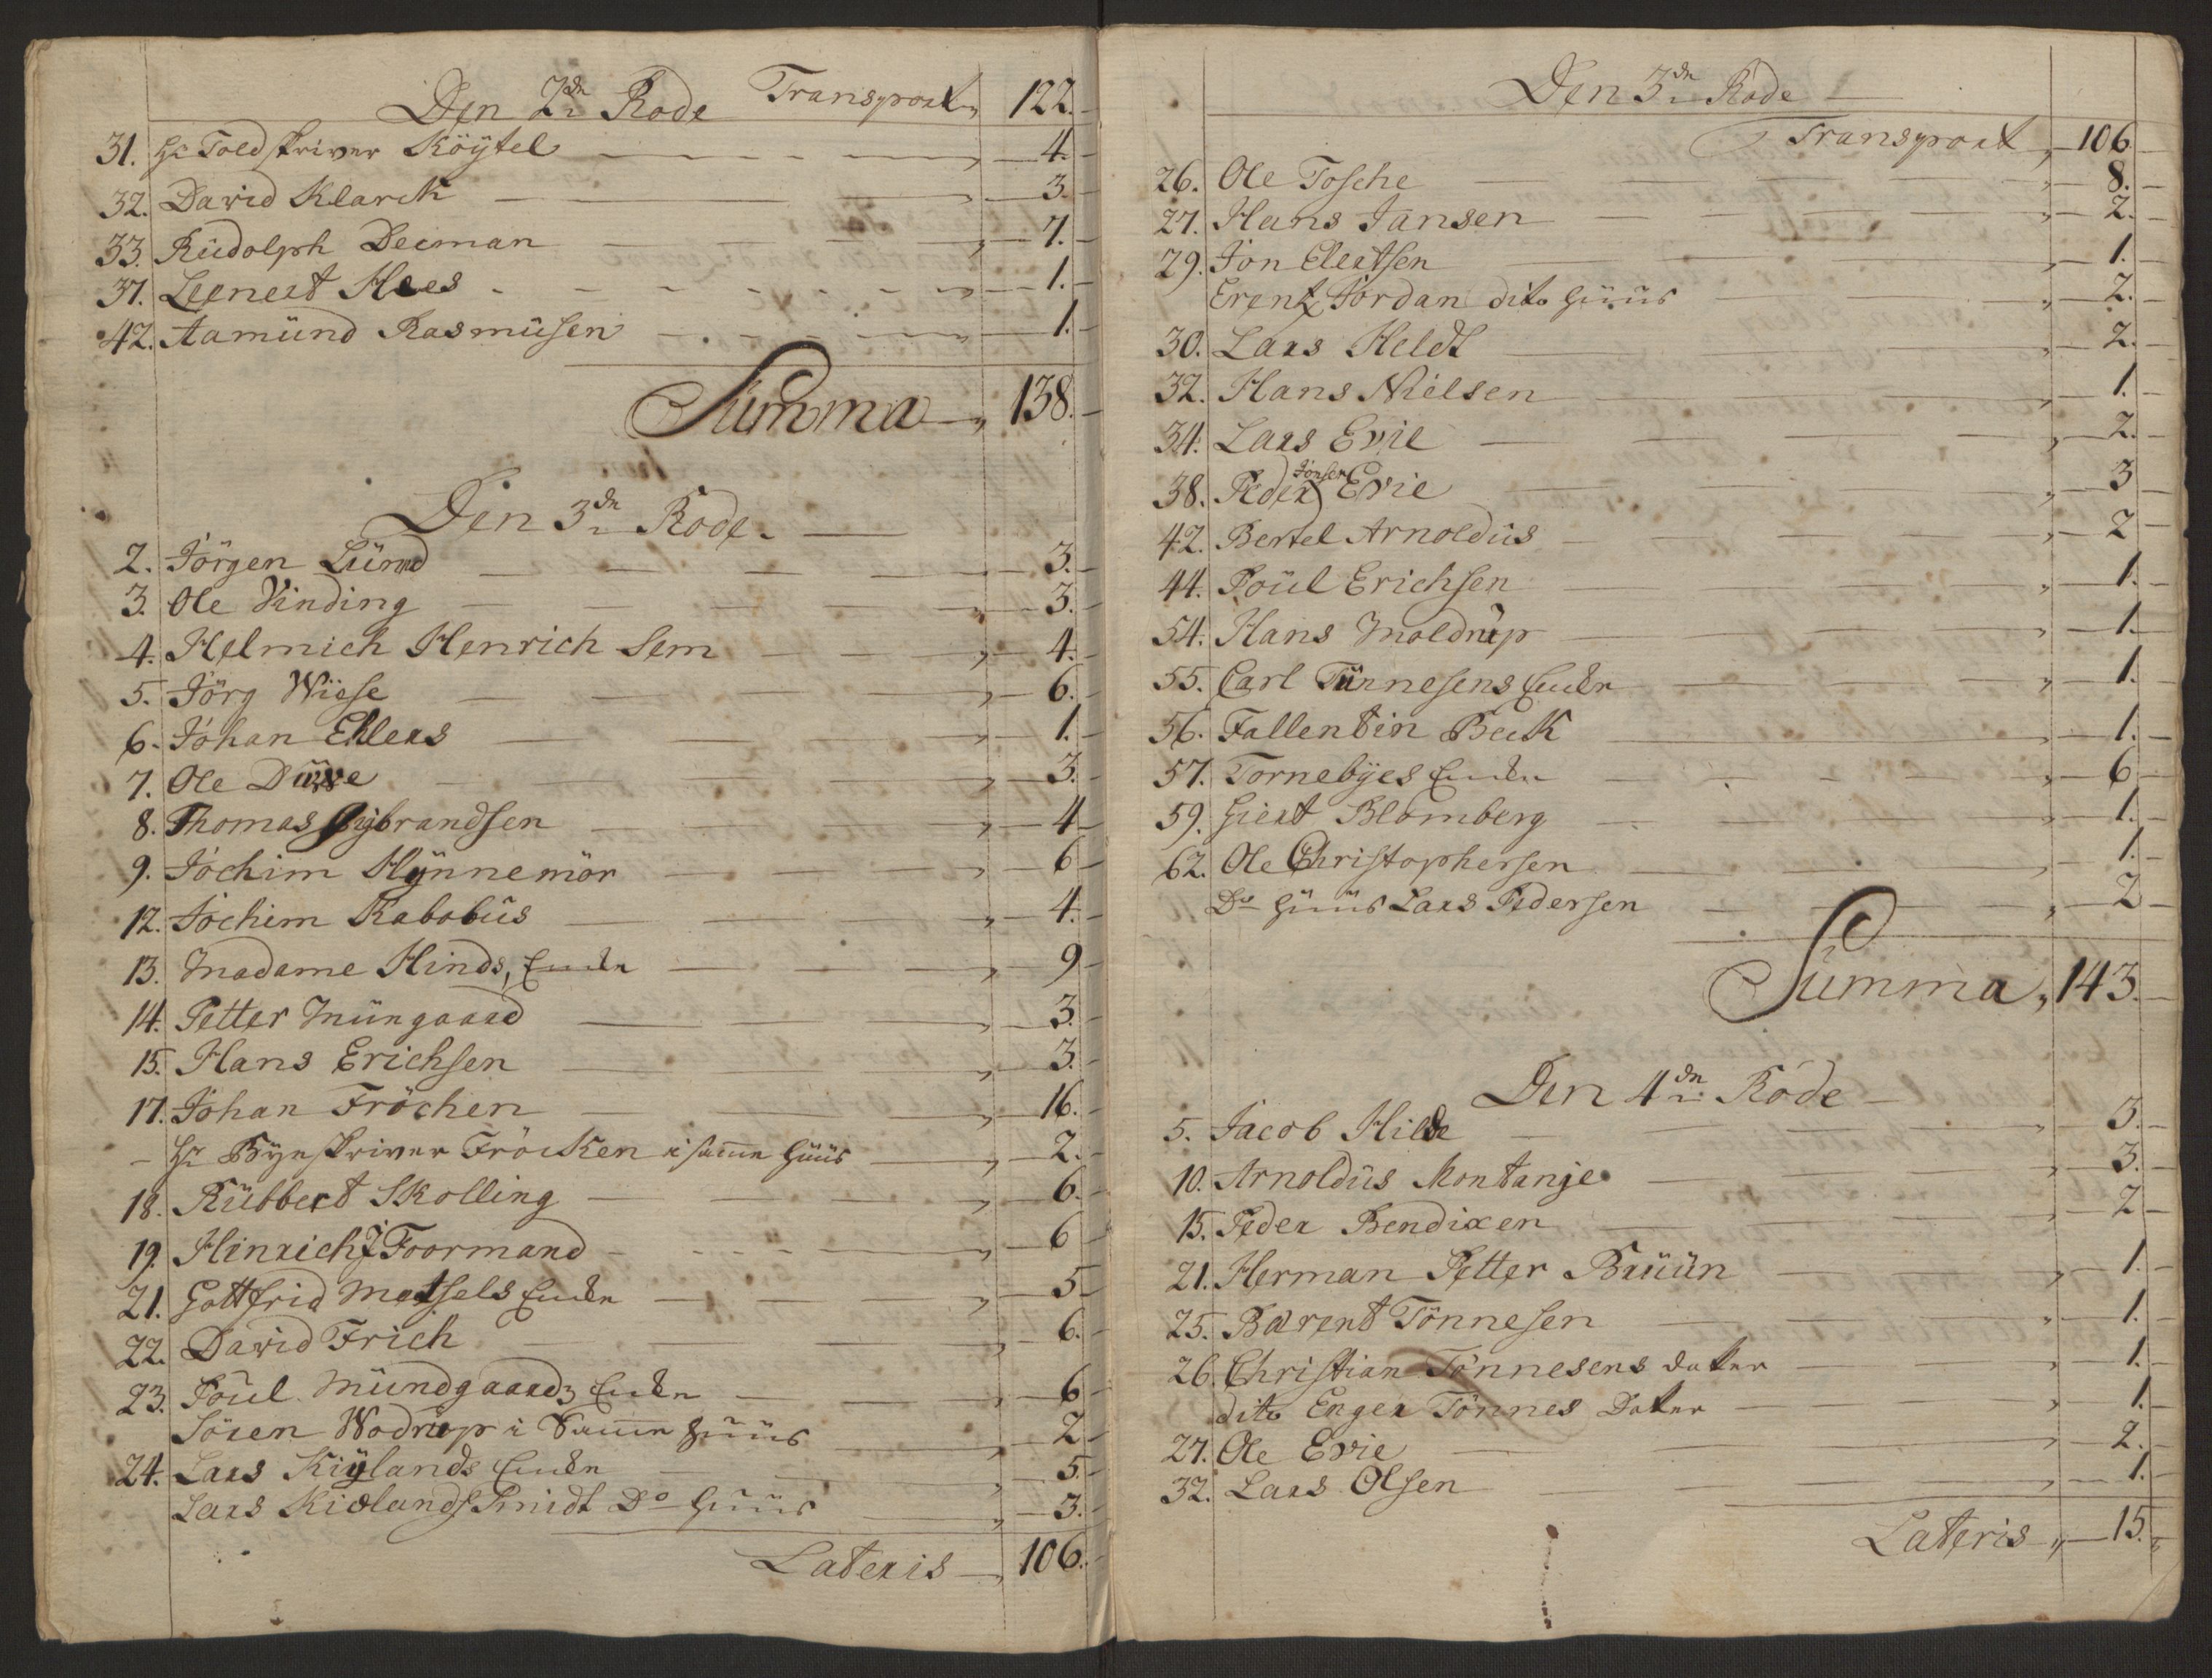 Den 2dn Rode Transport 122.
31. Hr Toldskriver Köÿtel 4.
32. David Klarck 3.
33. Rüdolph Deeman 7.
37. Leenert Hees 1.
42. Aamünd Rasmüsen 1.
Summa 138.
Den 3dn Rode.
2. Jörgen Lünd 3.
3. Ole Vinding 3.
4. Helmich Henrich Sem 4.
5. Jörg Wiese 6.
6. Johan Ehlers 1.
7. Ole 3.
8. Thomas Sÿbrandsen 4
9. Jochim Hÿnnemör 6
12. Jochim Rabobüs 4.
13. Madame Hinds, Encke 9
14. Petter Müngaard 3.
15. Hans Erichsen 3.
17. Johan Fröchen 16.
Hr Bÿeskriver Fröcken i samme Hüüs 2.
18. Rübbert Skolling 6.
19. Hinrich J Foormand 6
21. Gottfrid Metsels Encke 5
22. David Frich 6.
23. Poül Mündgaards Encke 6
Sören Wodrüp i Samme Hüüs 2
24. Lars Kiÿlands Encke 5.
Lars Kiölands Smidt Do Hüüs 3.
Lateris 106.
Den 3dn Rode
Transport 106
26. Ole Tosche 8.
27. Hans Jansen 2.
29. Jon Elertsen 1.
Erentz Jordan dito Hüüs 2.
30. Lars Heldt 2.
32. Hans Nielsen 1.
34. Lars Evie 2.
38. Peder Jonsen Evie 3
42. Bertel Arnoldüs 2
44. Poül Erichsen 1.
54. Hans Moldrüp 1.
55. Carl Tünnesens Encke 1.
56. Fallentin Beck 1.
57. Tornebÿes Encke 6
59. Giert Blomberg 1.
62. Ole Christophersen 1.
Do Hüüs Lars Pedersen 2
Summa 143.
Den 4dn Rode
5. Jacob Hilde 3.
10. Arnoldüs Montanje 3.
15. Peder Bendixen 2
21. Herman Petter Brüün 1.
25. Bærent Tönnesen 1.
26. Christian Tönnesens Datter 1.
dito Enger Tönnes Datter 1.
27. Ole Evie 2.
32. Lars Olsen 1.
Lateris 15.